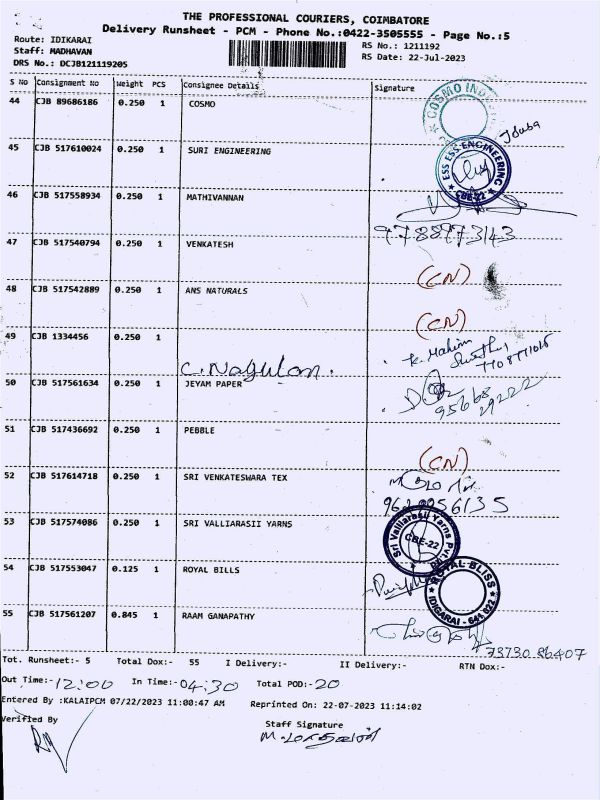 THE PROFESSIONAL COURIERS, COIMBATORE
Delivery Runsheet - PCM - Phone No.:0422-3505555 - Page No.:5
Route: IDIKARAI
RS No.: 1211192
Staff: MADHAVAN
RS Date: 22-Jul-2023
DRS No.: DCJB121119205
S No Consignment No Weight PCS Consignee Details Signature
44 CJB 89686186 0.250 1 COSMO
COSMO
45 CJB 517610024 0.250 1 SURI ENGINEERING
ESS ESS ENGINEERING
CBE-22
46 CJB 517558934 0.250 1 MATHIVANNAN
9788973143
47 CJB 517540794 0.250 1 VENKATESH
(CN)
48 CJB 517542889 0.250 1 ANS NATURALS
(CN)
49 CJB 1334456 0.250 1
C. Nagulan.
50 CJB 517561634 0.250 1 JEYAM PAPER
51 CJB 517436692 0.250 1 PEBBLE
(CN)
52 CJB 517614718 0.250 1 SRI VENKATESWARA TEX
53 CJB 517574086 0.250 1 SRI VALLIARASII YARNS
Sri Valliarasii Yarns Pvt
CBE-22
54 CJB 517553047 0.125 1 ROYAL BILLS
ROYAL BLISS
IDIGARAI - 641 022
55 CJB 517561207 0.845 1 RAAM GANAPATHY
73730 86407
Tot. Runsheet:- 5 Total Dox:- 55 I Delivery:- II Delivery:- RTN Dox:-
Out Time:-12:00 In Time:-04:30 Total POD:-20
Entered By :KALAIPCM 07/22/2023 11:00:47 AM Reprinted On: 22-07-2023 11:14:02
Verified By
Staff Signature